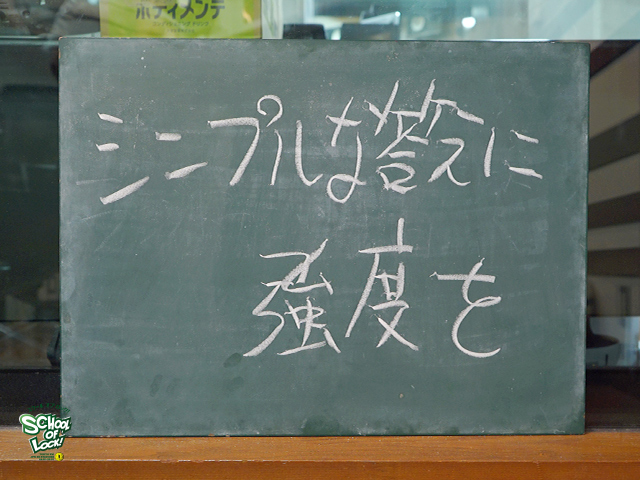 ボディメンテ
シンプルな答えに
強度を
SCHOOL
OF
LOCK!